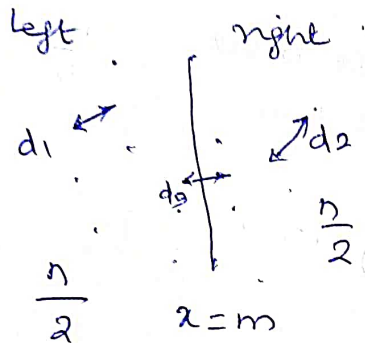 left right
d1
d2
d3
n/2
n/2
x=m